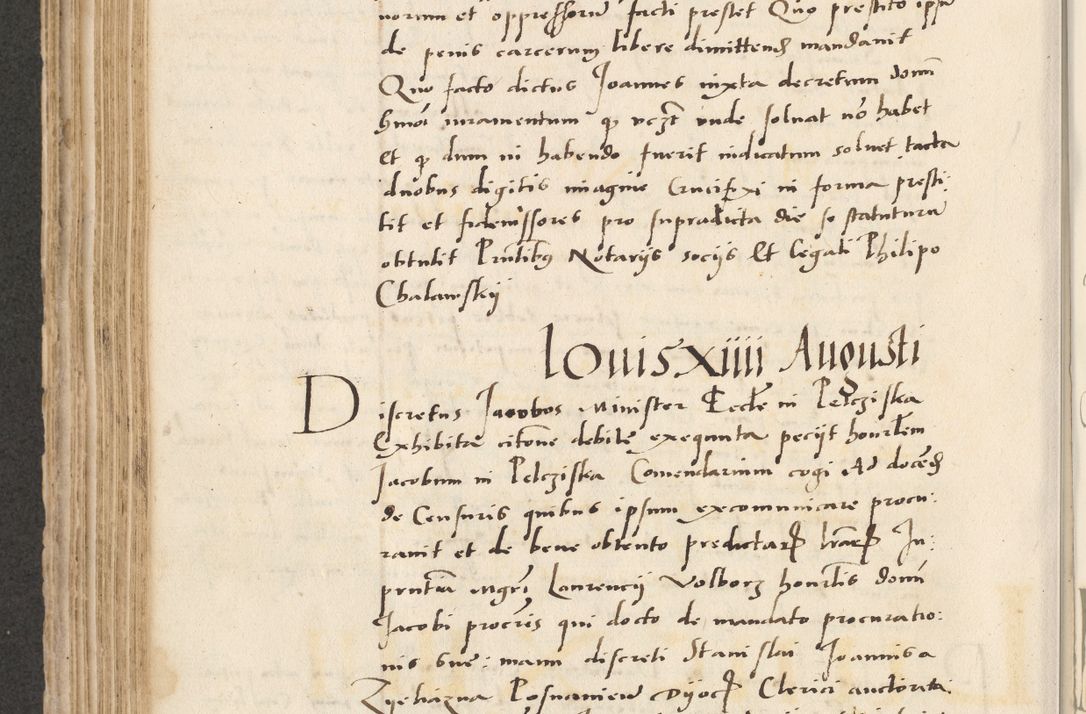 norum et oppressorũ facti prestet Quo prestito ipsũ
de penis carcerum libere dimittend mandavit
Quo facto dictus Joannes iuxta decretum domĩ
hmoi iuramentum q vezt unde solvat nõ habet
Et q dum in habendo fuerit iudicatum solvet tacta
duobus digitis imagine Crucifixi in forma presti:
tit et fideiussores pro supradicta die so statuturũ
obtulit Pntibus Notarijs socijs Et Legati Philipo
Chalawskij
Iovis xiiii Augusti
Discretus Jacobus Minister Eccle in Pelcziska
Exhibita citone debite exequuta pecijt honrlem
Jacobum in Pelcziska Comendarium cogi Ad docend
de Censuris quibus ipsum excomunicare procu:
ravit et de bene obtento predictar lrar In:
pruntia Mgri Laurencij Volborz honrlis domĩ
Jacobi procris qui docto de mandato procuratio:
nis sue: manu discreti Stanislai Joannis a
Posnanien Dyoc Clerici auctorita